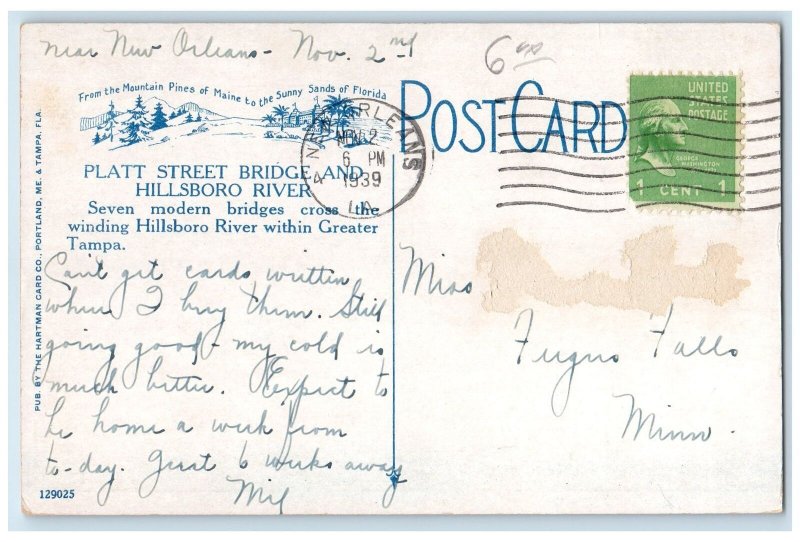 near New Orleans - Nov. 2nd
6.00
From the Mountain Pines of Maine to the Sunny Sands of Florida
POST CARD
UNITED
STATES
POSTAGE
GEORGE
WASHINGTON
1 CENT 1
NEW ORLEANS
4
NOV 2
6 PM
1939
LA.
PLATT STREET BRIDGE AND
HILLSBORO RIVER
Seven modern bridges cross the
winding Hillsboro River within Greater
Tampa.
Can't get cards written
when I buy them. Still
going good - my cold is
much better. Expect to
be home a week from
to-day. Just 6 weeks away
Mil
Miss
Fergus Falls
Minn.
PUB. BY THE HARTMAN CARD CO., PORTLAND, ME. & TAMPA, FLA.
129025